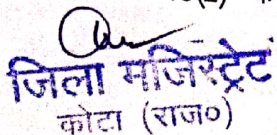 जिला मजिस्ट्रेट
कोटा (राज०)